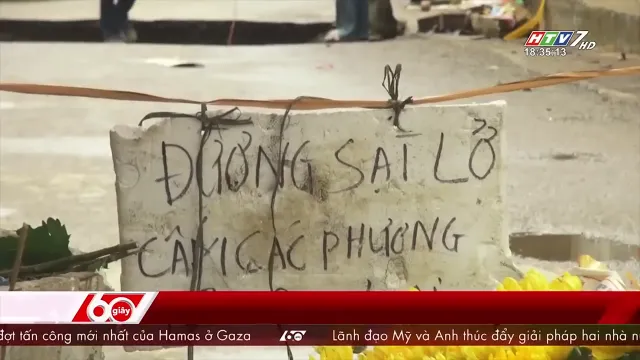 HTV7 HD
18:35:13
ĐƯỜNG SẠT LỞ
CẤM CÁC PHƯƠNG
60 giây
đợt tấn công mới nhất của Hamas ở Gaza 60 Lãnh đạo Mỹ và Anh thúc đẩy giải pháp hai nhà n